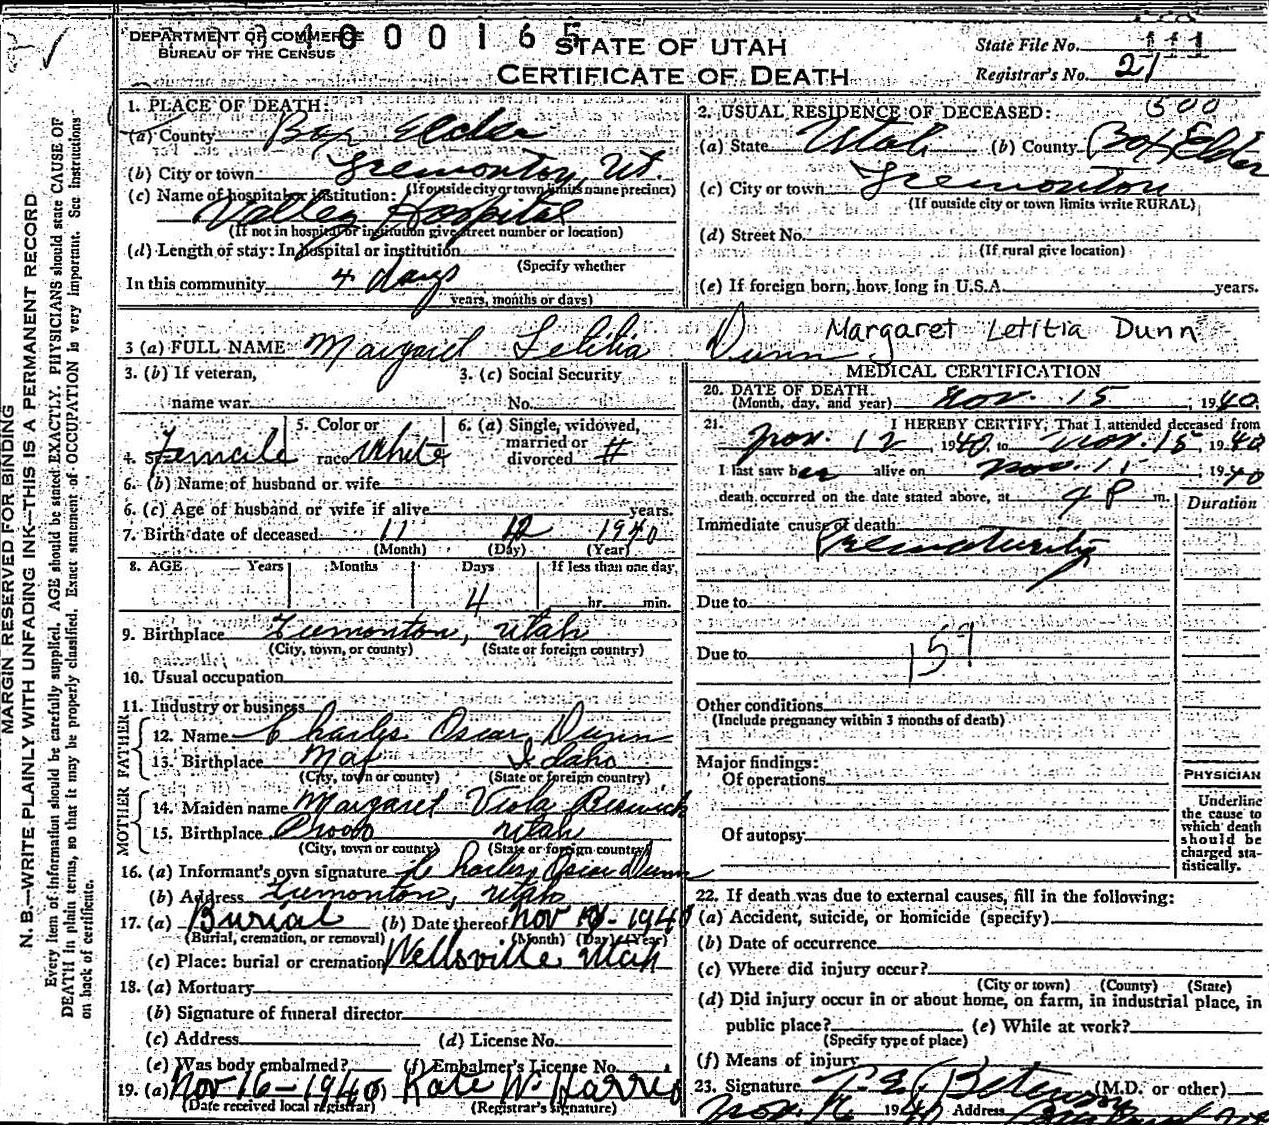 DEPARTMENT OF COMMERCE
BUREAU OF THE CENSUS
1000165
STATE OF UTAH
CERTIFICATE OF DEATH
State File No. 111
Registrar's No. 21
MARGIN RESERVED FOR BINDING
N. B.—WRITE PLAINLY WITH UNFADING INK—THIS IS A PERMANENT RECORD
Every item of information should be carefully supplied. AGE should be stated EXACTLY. PHYSICIANS should state CAUSE OF
DEATH in plain terms, so that it may be properly classified. Exact statement of OCCUPATION is very important. See instructions
on back of certificate.
1. PLACE OF DEATH:
(a) County Box Elder
(b) City or town Tremonton, Ut.
(If outside city or town limits name precinct)
(c) Name of hospital or institution:
Valley Hospital
(If not in hospital or institution give street number or location)
(d) Length of stay: In hospital or institution
(Specify whether
In this community 4 days
years, months or days)
2. USUAL RESIDENCE OF DECEASED: 500
(a) State Utah (b) County Box Elder
(c) City or town Tremonton
(If outside city or town limits write RURAL)
(d) Street No.
(If rural give location)
(e) If foreign born, how long in U.S.A. years.
3 (a) FULL NAME Margaret Letitia Dunn
Margaret Letitia Dunn
3. (b) If veteran, 3. (c) Social Security
name war No.
4. Sex Female 5. Color or race White 6. (a) Single, widowed, married or divorced #
6. (b) Name of husband or wife
6. (c) Age of husband or wife if alive years.
7. Birth date of deceased 11 12 1940
(Month) (Day) (Year)
8. AGE Years Months Days If less than one day,
4 hr. min.
9. Birthplace Tremonton, Utah
(City, town, or county) (State or foreign country)
10. Usual occupation
11. Industry or business
FATHER
12. Name Charles Oscar Dunn
13. Birthplace Idaho
(City, town or county) (State or foreign country)
MOTHER
14. Maiden name Margaret Viola Beswick
15. Birthplace Provo Utah
(City, town or county) (State or foreign country)
16. (a) Informant's own signature Charles Oscar Dunn
(b) Address Tremonton, Utah
17. (a) Burial (b) Date thereof Nov 1940
(Burial, cremation, or removal) (Month) (Day) (Year)
(c) Place: burial or cremation Wellsville Utah
18. (a) Mortuary
(b) Signature of funeral director
(c) Address (d) License No.
(e) Was body embalmed? (f) Embalmer's License No.
19. (a) Nov 16-1940 Kate W. Harris
(Date received local registrar) (Registrar's signature)
MEDICAL CERTIFICATION
20. DATE OF DEATH
(Month, day, and year) Nov. 15, 1940
21. I HEREBY CERTIFY, That I attended deceased from
Nov. 12, 1940 to Nov. 15, 1940
I last saw her alive on Nov. 15 1940
death occurred on the date stated above, at 4 P m.
Duration
Immediate cause of death
Prematurity
Due to
Due to
157
Other conditions
(Include pregnancy within 3 months of death)
Major findings:
Of operations
Of autopsy
PHYSICIAN
Underline
the cause to
which death
should be
charged sta-
tistically.
22. If death was due to external causes, fill in the following:
(a) Accident, suicide, or homicide (specify)
(b) Date of occurrence
(c) Where did injury occur?
(City or town) (County) (State)
(d) Did injury occur in or about home, on farm, in industrial place, in
public place? (e) While at work?
(Specify type of place)
(f) Means of injury
23. Signature (M.D. or other)
Nov. 16 1940 Address